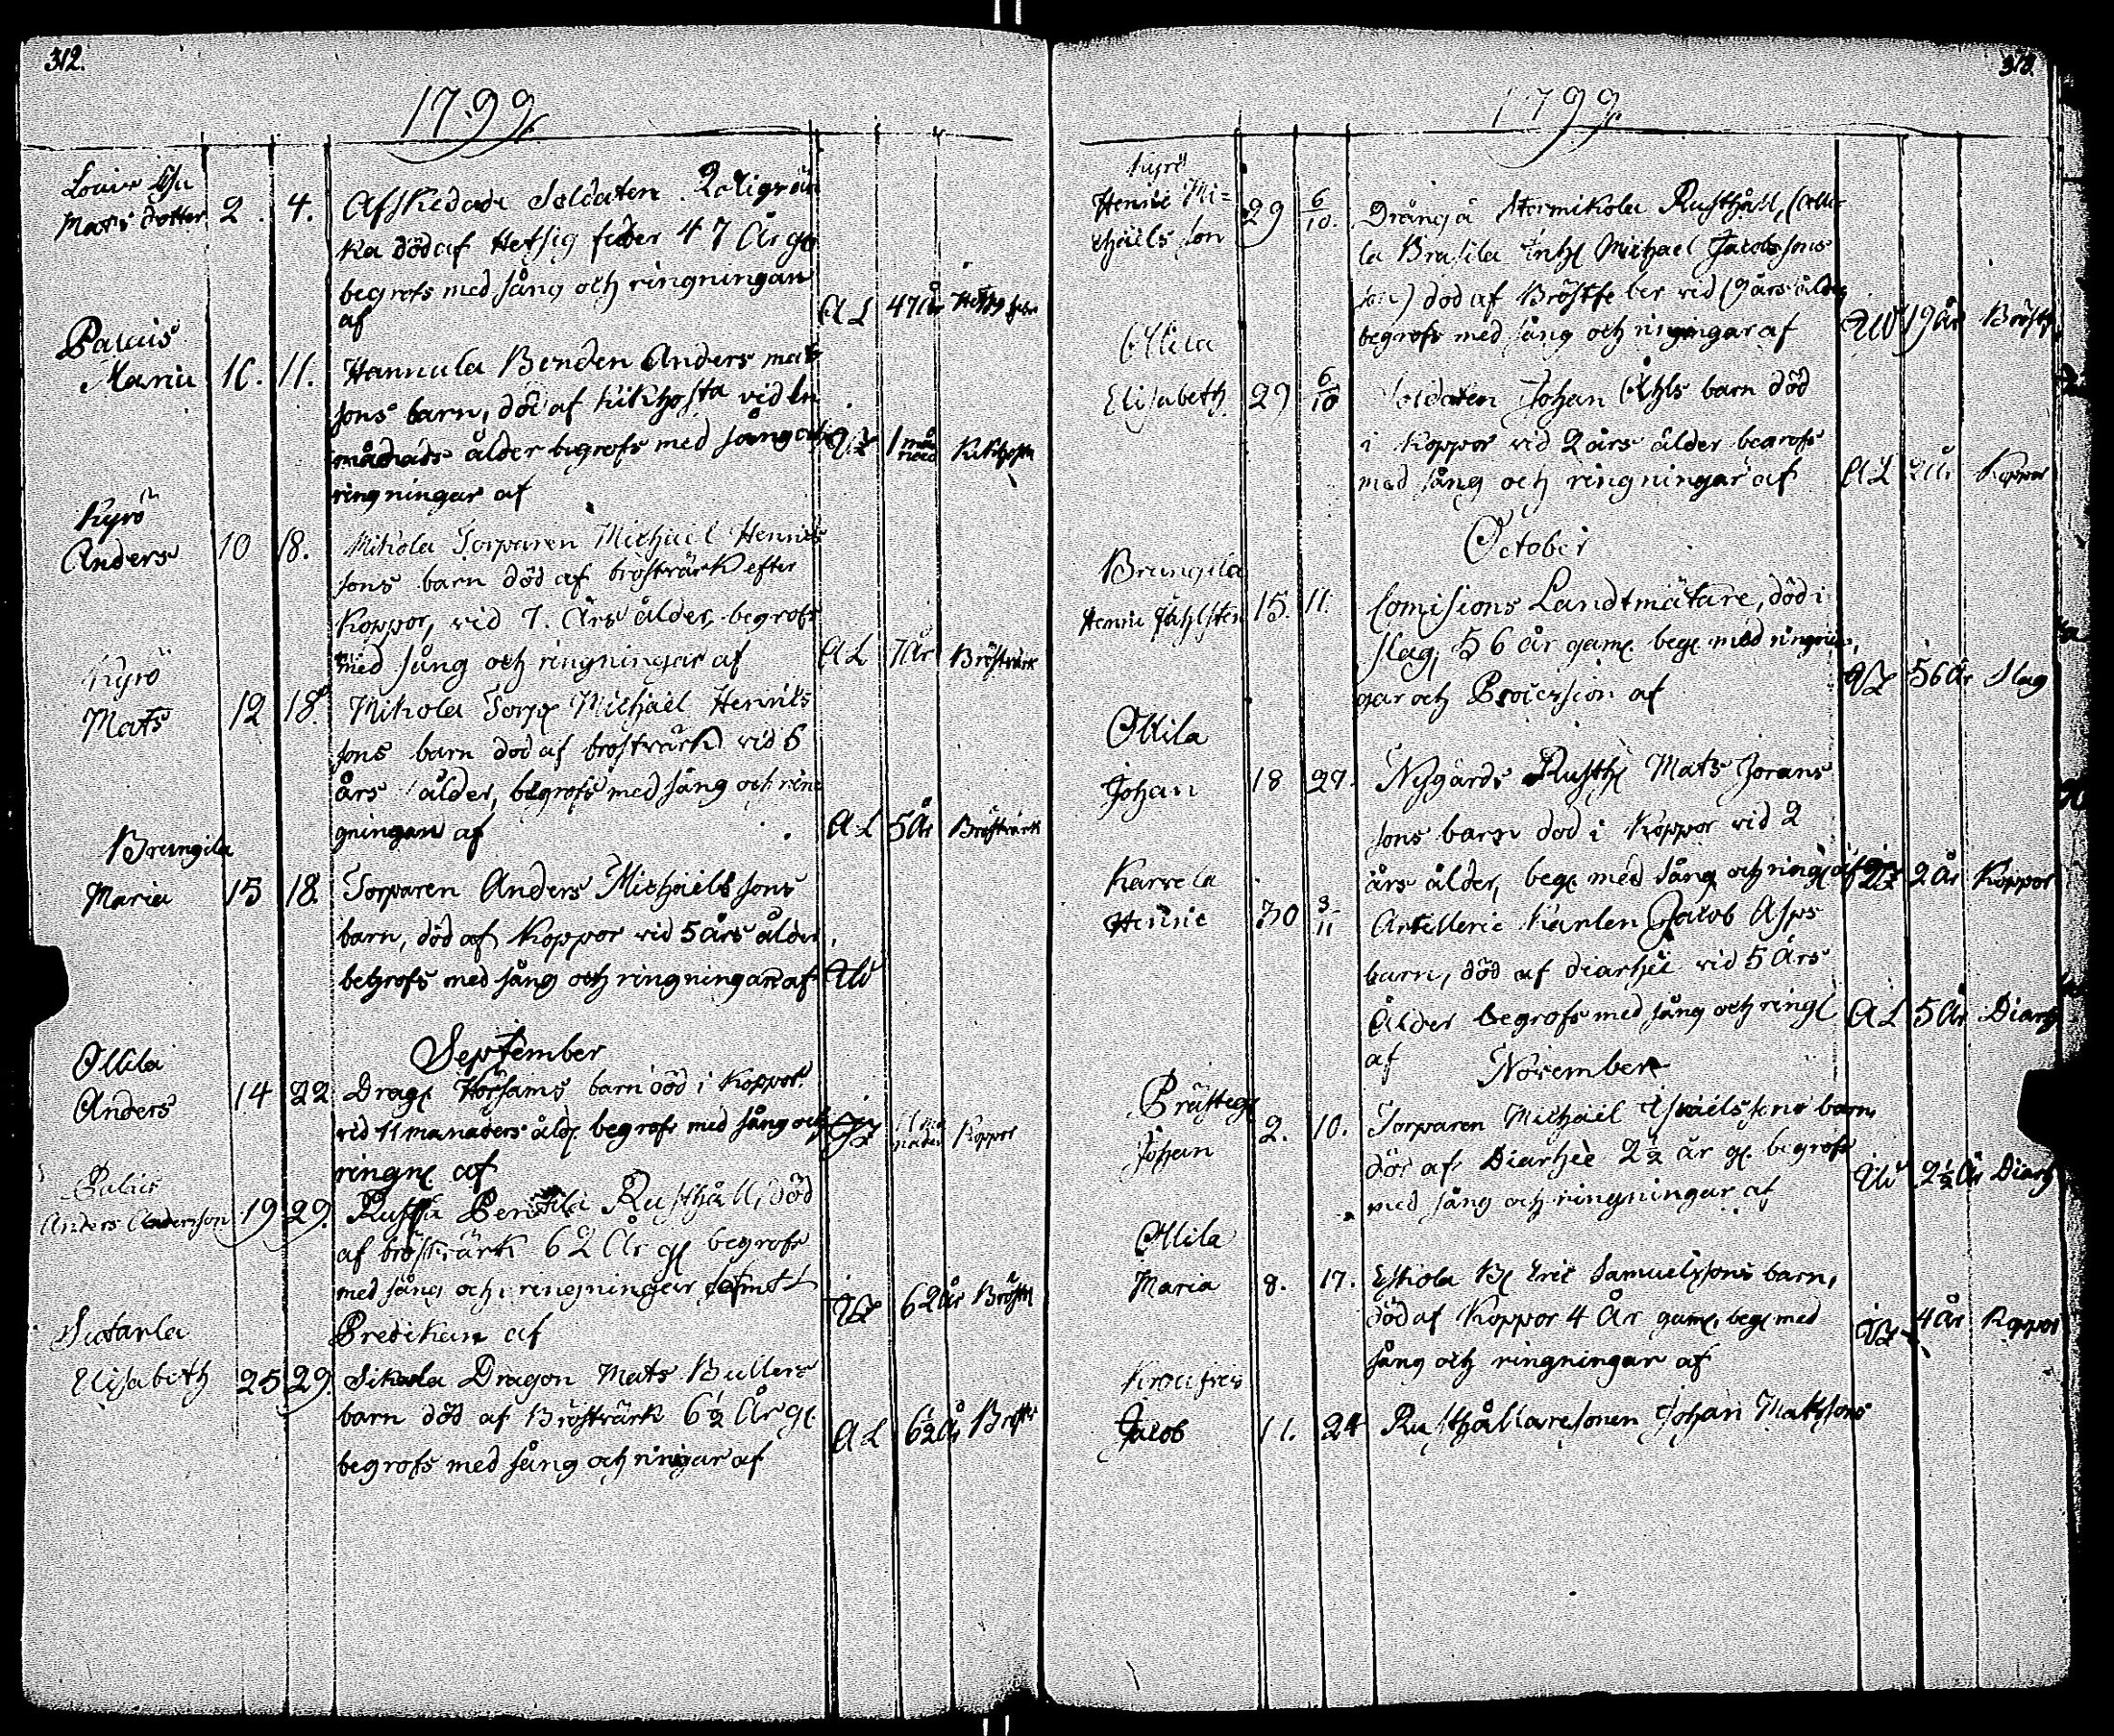 312.
1799.
Mats dotter 2. 4. Afskedade Soldaten
ka död af Hetsig feber 47 År ga
begrofs med sång och ringningar
af AL 47 År
Palais
Maria 10. 11. Hannula Bonden Anders mats
sons barn, död af kikhosta vid
månads ålder begrofs med sång och 1 månad Kikhosta
ringningar af
Kyrö
Anders 10 18. Mikola Torparen Michael Henriks
sons barn död af bröstvärk efter
Koppor, vid 7. Års ålder, begrofs
med sång och ringningar af AL 7 År Bröstvärk
Kyrö
Mats 12 18. Mikola Torp Michaël Henriks
sons barn död af bröstvärk vid 5
års ålder, begrofs med sång och rin
gningar af AL 5 År Bröstvärk
Brungila
Maria 15 18. Torparen Anders Michaëls sons
barn, död af Koppor vid 5 års ålder,
begrofs med sång och ringningar af
September
Ollila
Anders 14 22 Drag barn död i Koppor
vid 11 månaders åld. begrofs med sång och Koppor
ringn af
Palais
Anders Andersson 19 29. Rusthåll, död
af bröstvärk 62 År gl begrofs
med sång och ringningar samt 62 År Bröstv
Predikan af
Elisabeth 25 29. Dragon Mats Bullers
barn död af Bröstvärk 6½ År gl.
begrofs med sång och ringar af AL 6½ År
1799.
Kyrö
Henric Mi=
chaëls son 29 6/10. Dräng å Stormikola Rusthåll,
la Brusila Inh Michael Jacobs sons
son) död af Bröstfeber vid 19 års ålder
begrofs med sång och ringningar af 19 år Bröstf
Ollila
Elisabeth 29 6/10 Soldaten Johan Åhls barn död
i Koppor vid 2 års ålder begrofs
med sång och ringningar af AL 2 År Koppor
October
Brungila
15. 11. Comisions Landtmätare, död i
slag, 56 år gam beg med ringnin,
gar och Procession af 56 År Slag
Ollila
Johan 18 27. Nygårds Rusth Mats Jorans
sons barn död i Koppor vid 2
års ålder, beg med sång och ring af 2 År Koppor
Karvela
Henric 30 3/11 Artillerie Karlen Jacob Asps
barn, död af diarhée vid 5 Års
Ålder begrofs med sång och ring AL 5 År Diarh
af
November
Prästeg
Johan 2. 10. Torparen Michaël Israëlssons barn
död af Diarhée 2½ år gl. begrofs
med sång och ringningar af 2½ År Diarh
Ollila
Maria 8. 17. Eskola B Eric Samuelssons barn,
död af Koppor 4 År gam, beg med 4 År Koppor
sång och ringningar af
Jacob 11. 24 Rusthållaresonen Johan Matssons